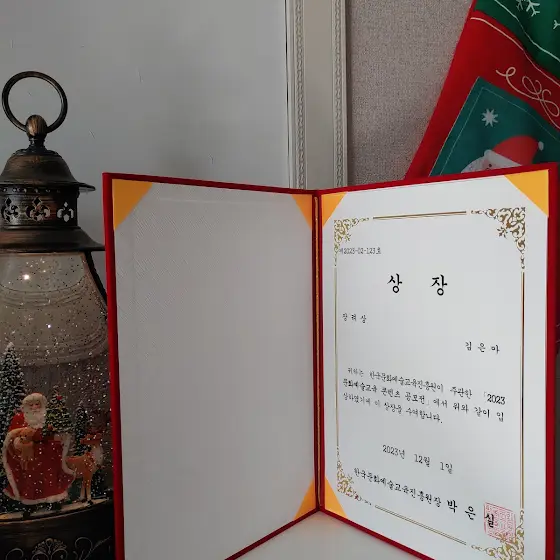 2023-02-123호
상 장
장려상
김은아
위하는 한국문화예술교육진흥원이 주관한 「2023
문화예술교육 콘텐츠 공모전」에서 위와 같이 입
상하였기에 이 상장을 수여합니다.
2023년 12월 1일
한국문화예술교육진흥원장 박 은 실